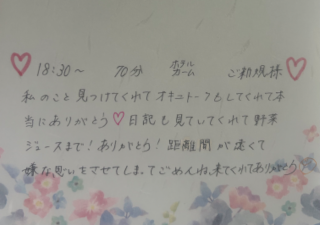 ♡ 18:30〜 70分 ホテルカーム ご新規様 ♡
私のこと見つけてくれてオキニトークもしてくれて本
当にありがとう♡日記も見ていてくれて野菜
ジュースまで！ありがとう！距離間が遠くて
嫌な思いをさせてしまってごめんね、来てくれてありがとう♡